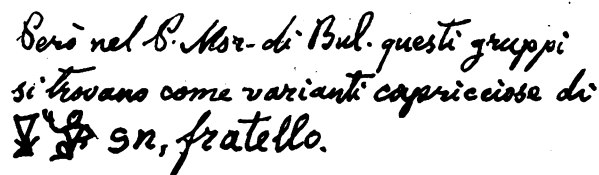 Però nel P. Mor- di Bul. questi gruppi
si trovano come varianti capricciose di
sn, fratello.